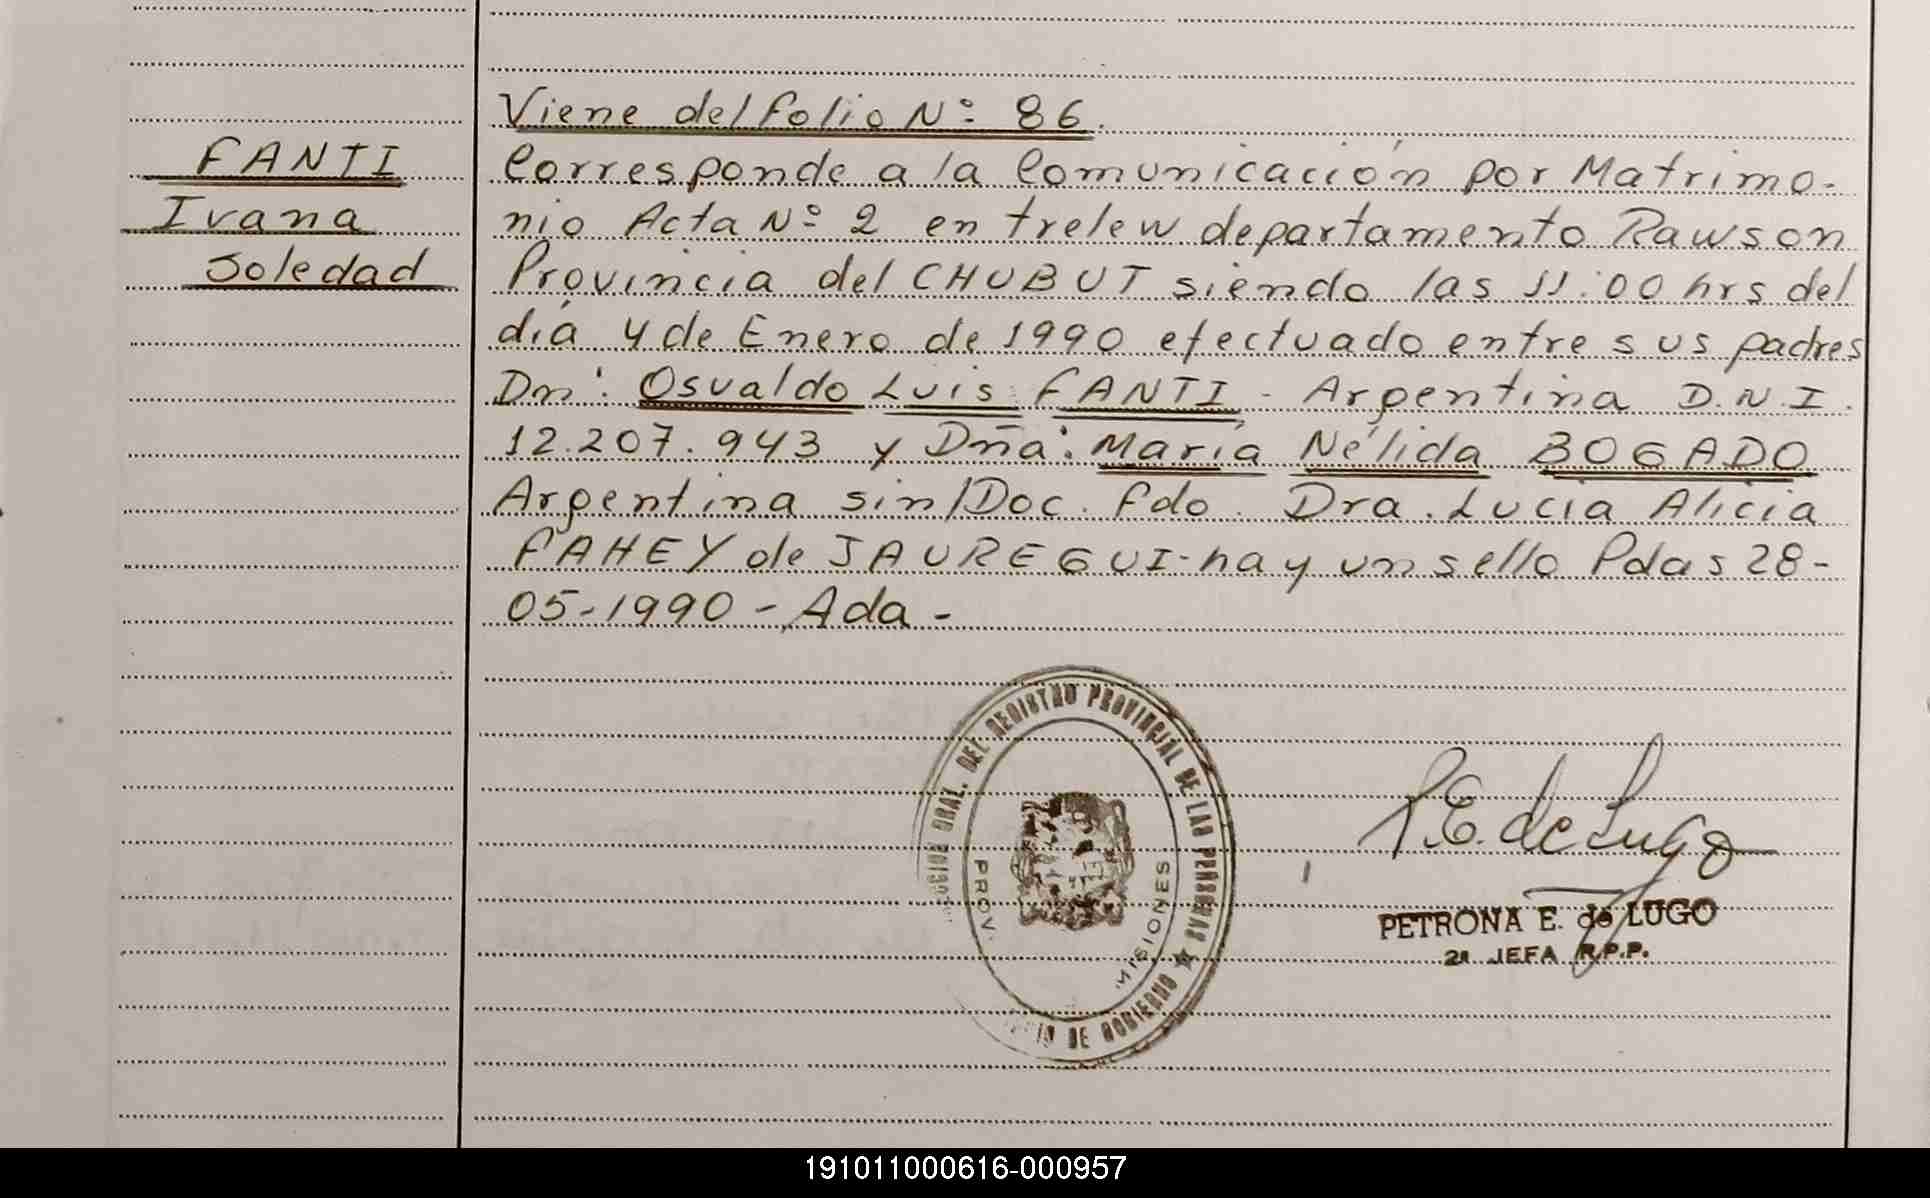 Viene del folio Nº 86.
FANTI
Ivana
Soledad
Corresponde a la Comunicación por Matrimo-
nio Acta Nº 2 en trelew departamento Rawson
Provincia del CHUBUT siendo las 11:00 hrs del
día 4 de Enero de 1990 efectuado entre sus padres
Dn: Osvaldo Luis FANTI - Argentina D.N.I.
12.207.943 y Dña: María Nélida BOGADO
Argentina sin/Doc. fdo. Dra. Lucia Alicia
FAHEY de JAUREGUI - hay un sello Pdas 28-
05-1990 - Ada -
GRAL. DEL REGISTRO PROVINCIAL DE LAS PERSONAS
PROV. MISIONES
DE GOBIERNO
P.E. de Lugo
PETRONA E. de LUGO
2a JEFA R.P.P.
191011000616-000957